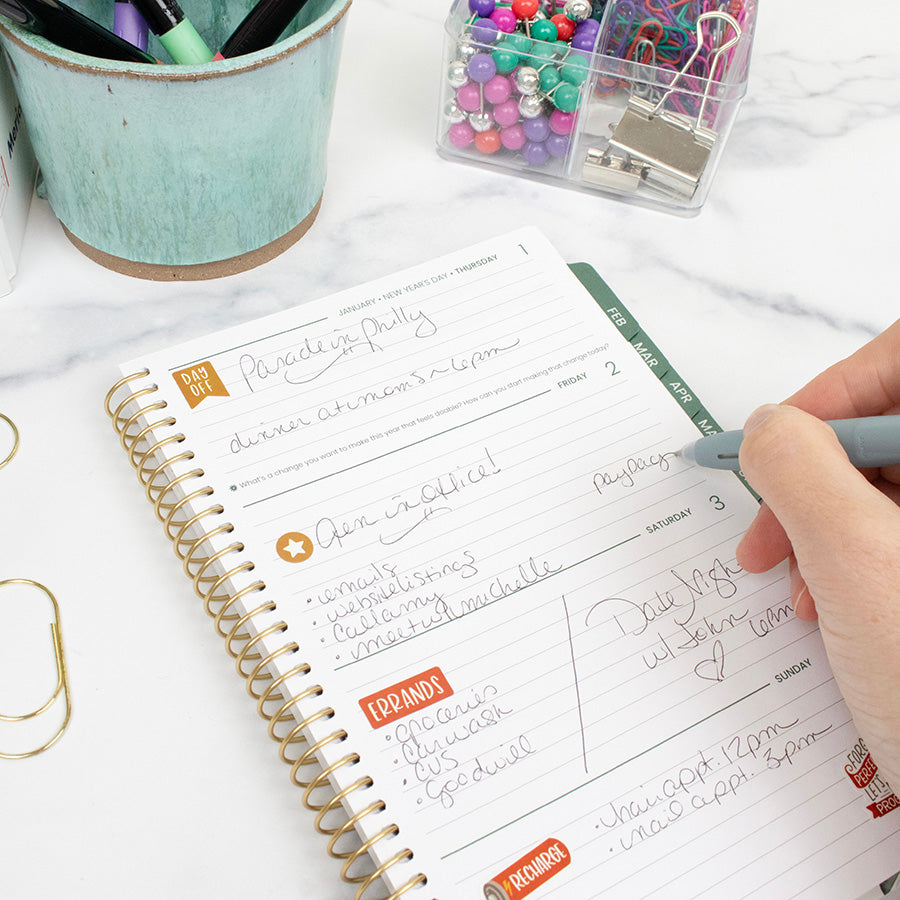 JANUARY • NEW YEAR'S DAY • THURSDAY 1
DAY
OFF
Parade in Philly
dinner at moms ~ 6pm
What's a change you want to make this year that feels doable? How can you start making that change today?
FRIDAY 2
payday
in office!
• emails
• website listings
• call amy
• meet w/ michelle
SATURDAY 3
ERRANDS
• groceries
• car wash
• CVS
• goodwill
Date Night
w/ John
SUNDAY
• hair appt. 12pm
• nail appt. 3pm
RECHARGE
FEB
MAR
APR